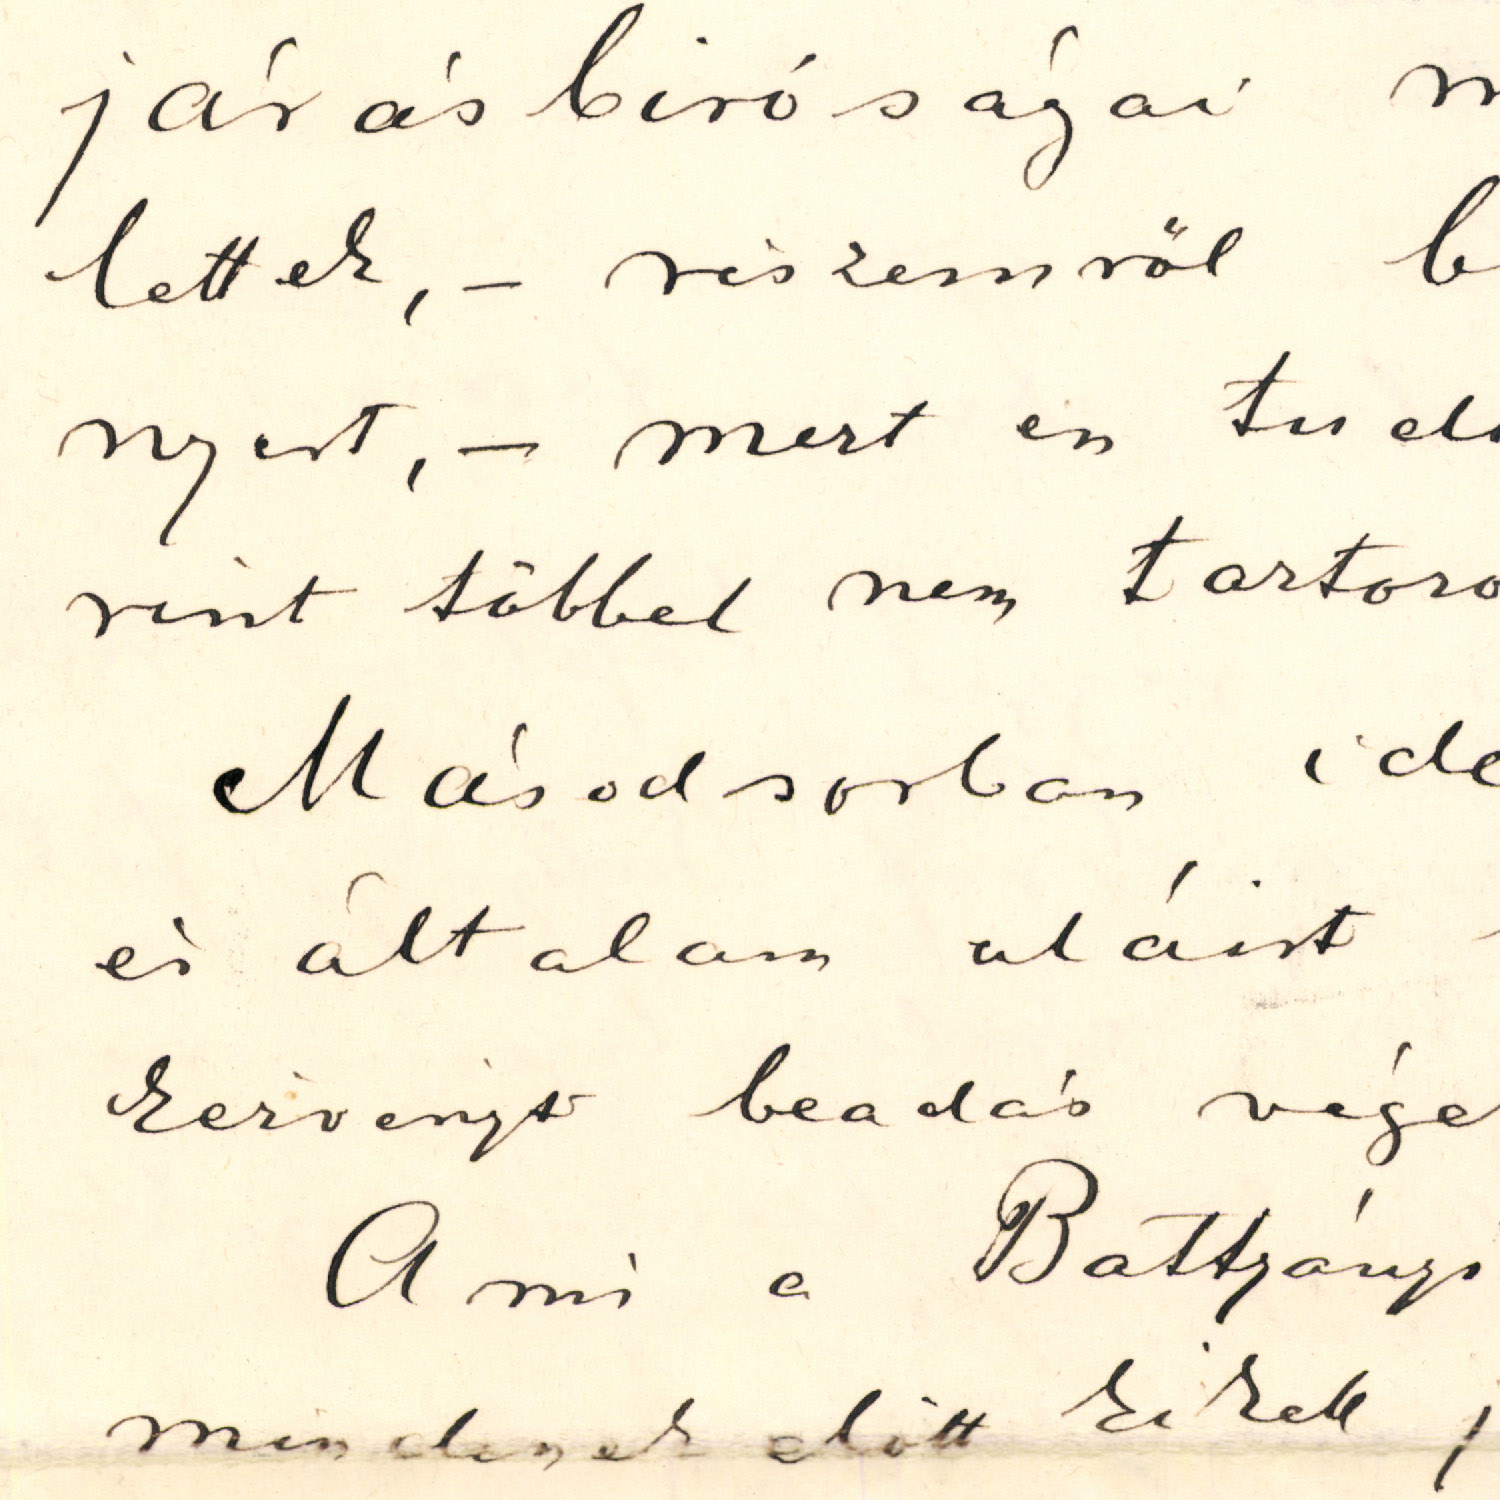 járásbiróságai
lettek, – részemről
nyert, – mert én
rint többel nem
Másodsorban
és általam aláirt
kérvényt beadás
Ami a Battyányi
mindenek előtt ki kell